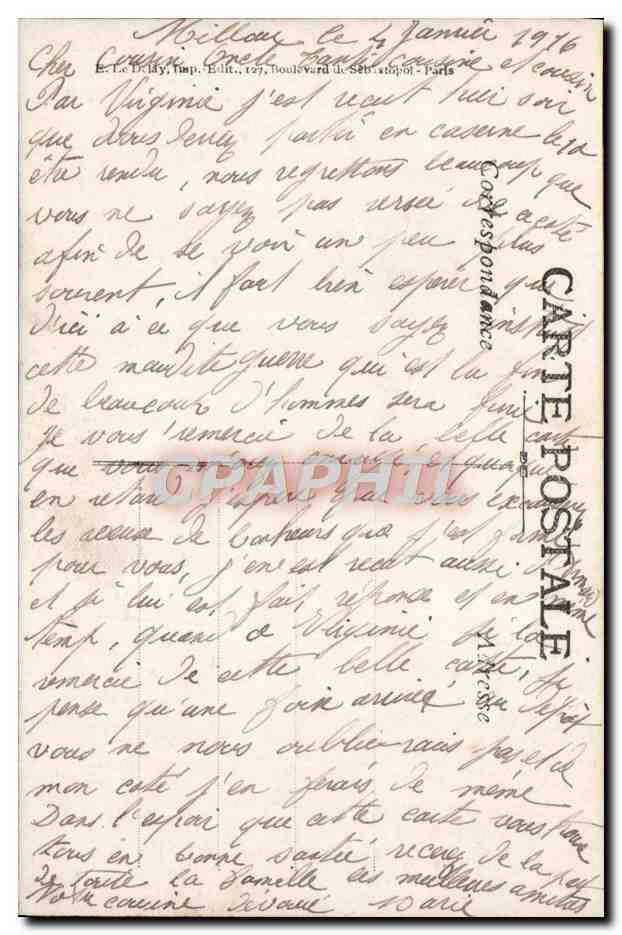 Millau le 4 Janvier 1916
Cher cousin, oncle tante cousine et cousin
E. Le Deley, Imp.-Edit., 127, Boulevard de Sébastopol - Paris
Par Virginie j'est recut hier soir
que vous deviez partir en caserne le 12
être rendu, nous regrettons beaucoup que
vous ne soyez pas versé de a coté
afin de se voir un peu plus
souvent, il faut bien espérer que
d'ici a ce que vous soyez
cette maudite guerre qui est la fin
de beaucoup d'hommes sera fini
Je vous remercie de la belle carte
que vous envoyé quoique
en retard j'espère que vous
les voeux de bonheurs que j'est formé
pour vous, j'en est recut aussi
et je lui est fait reponse et en même
temp, quand a Virginie je la
remercie de cette belle carte, je
pense qu'une foix arrivée au depôt
vous ne nous oublierais pas et de
mon coté j'en ferais de même
Dans l'espoir que cette carte vous trouve
tous en bonne santée recevez de la part
de toute la famille ces meilleures amitiés
Votre cousine devoué Marie
CARTE POSTALE
Correspondance
Adresse
CPAPHIL